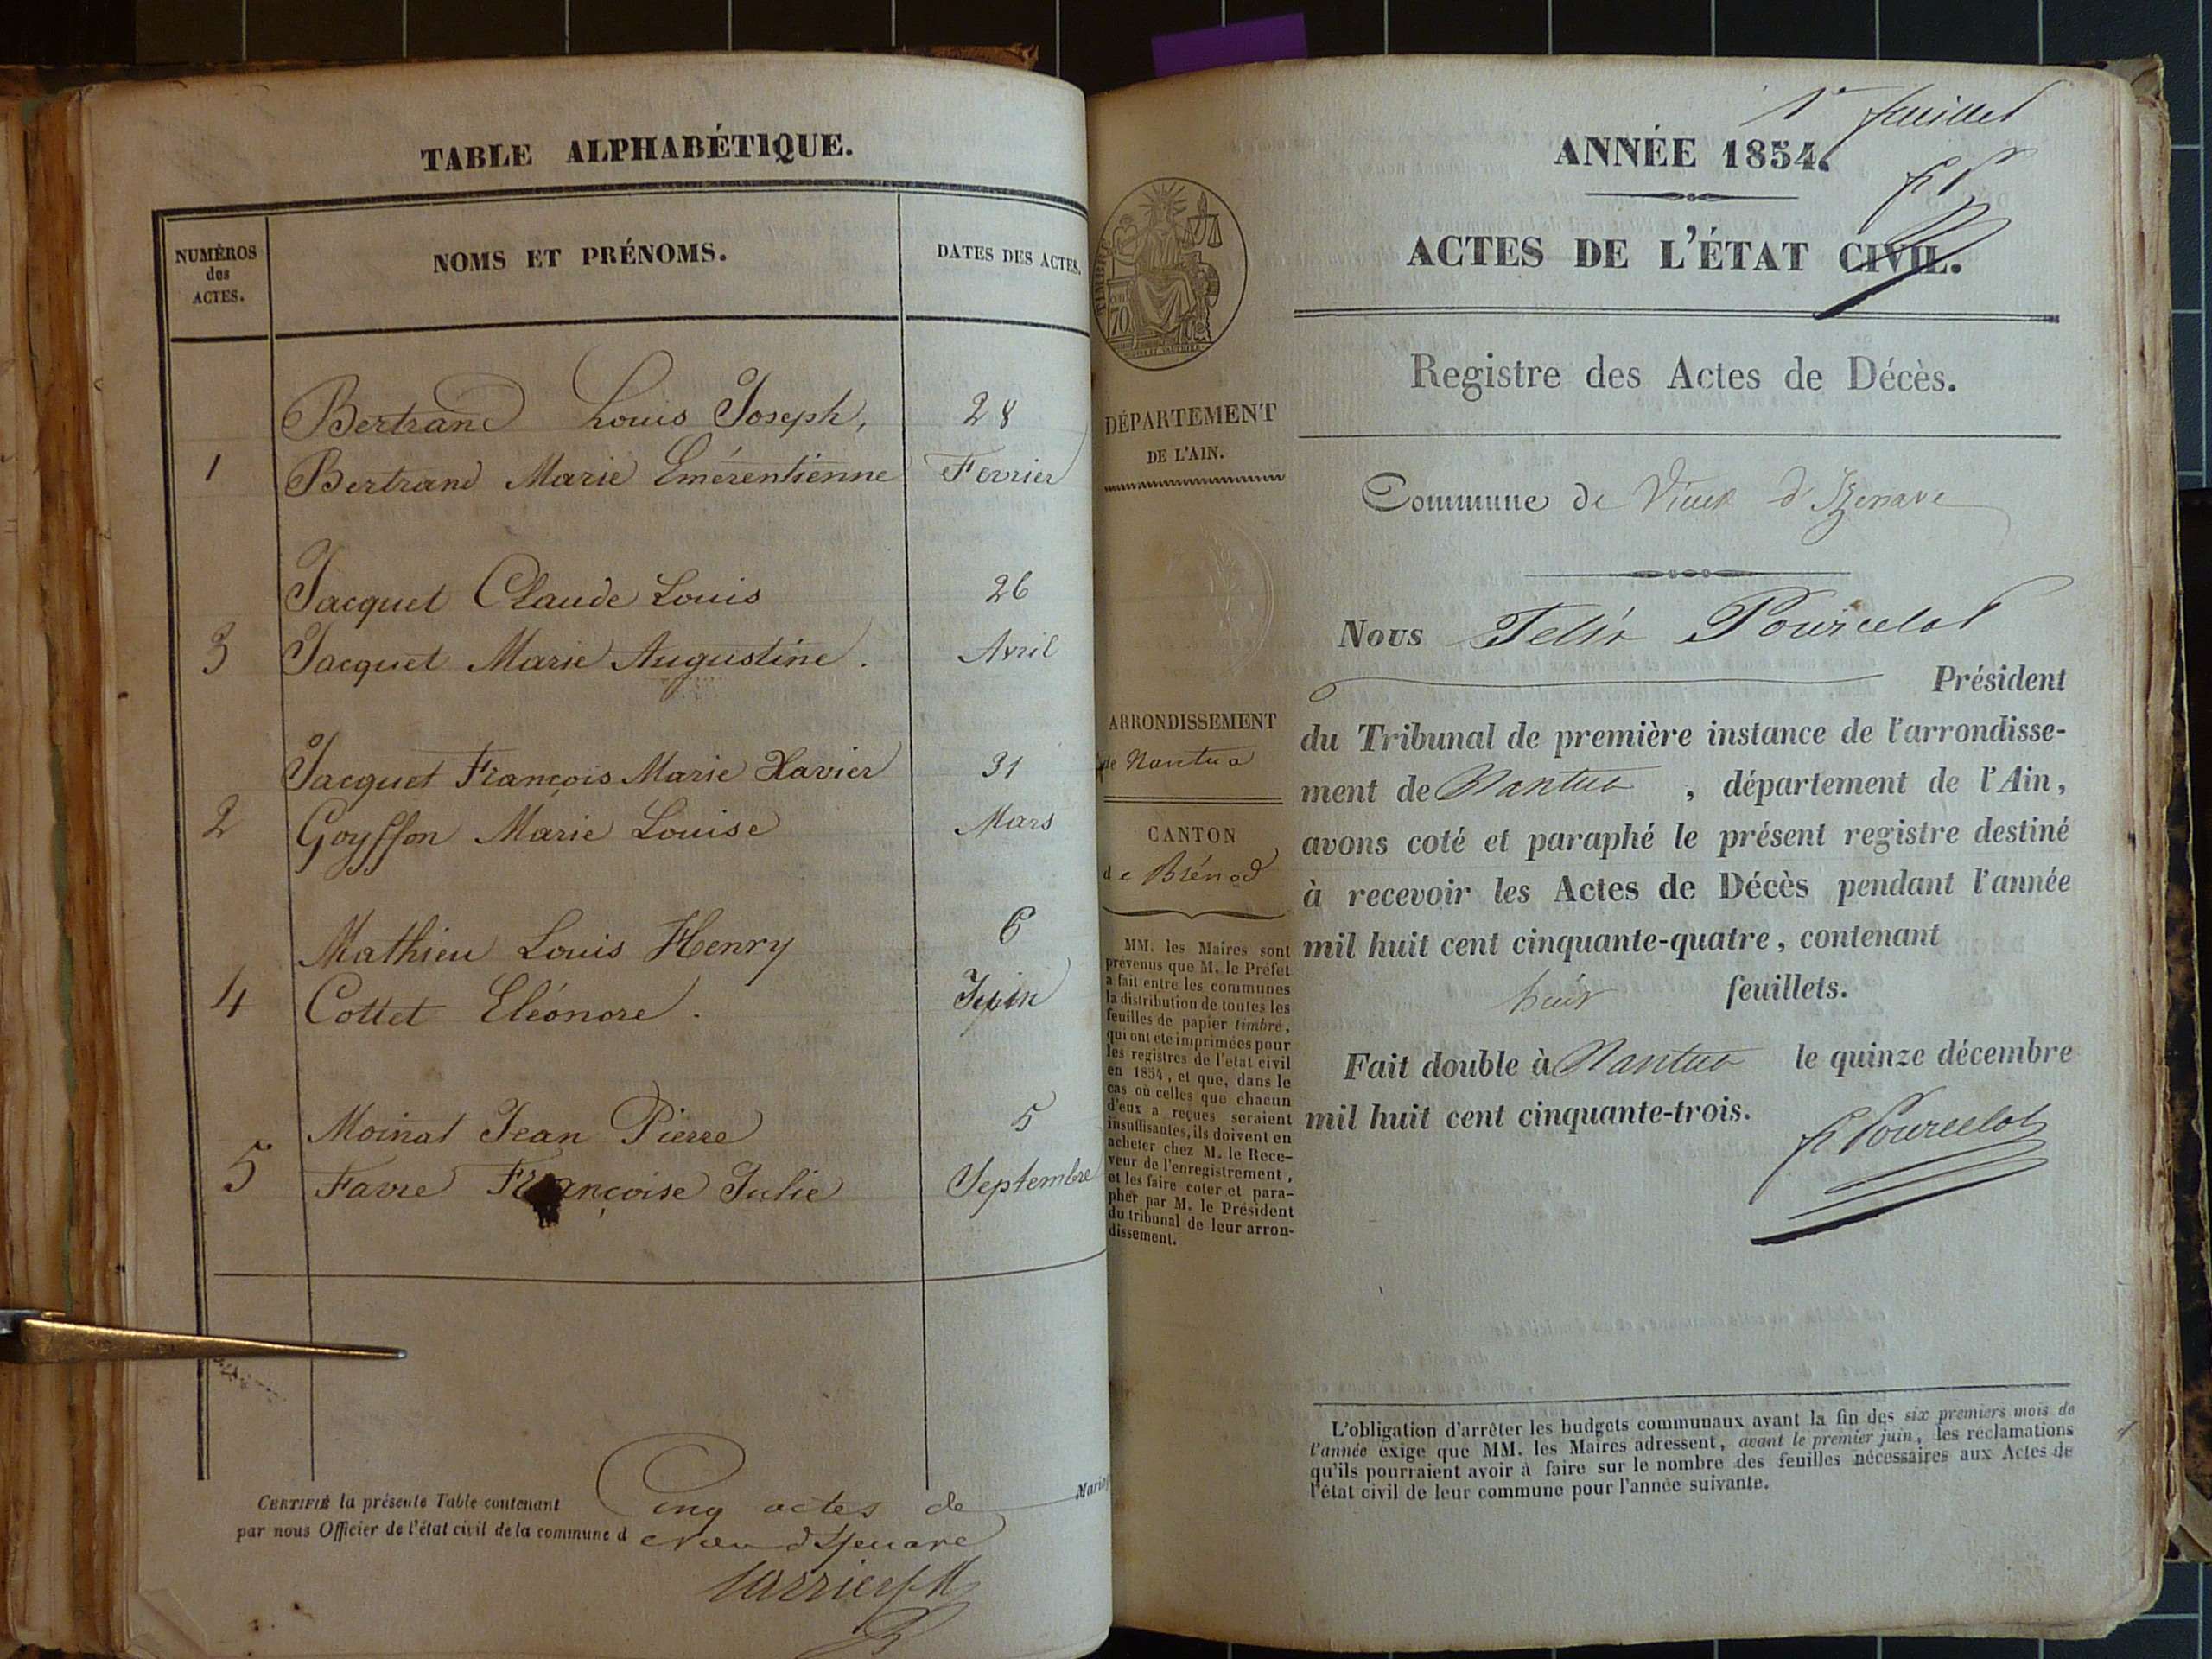 TABLE ALPHABÉTIQUE.
NUMÉROS
des
ACTES.
NOMS ET PRÉNOMS.
DATES DES ACTES.
Bertrand Louis Joseph, 28
1 Bertrand Marie Emérentienne Fevrier
Jacquet Claude Louis 26
3 Jacquet Marie Augustine. Avril
Jacquet François Marie Xavier 31
2 Goyffon Marie Louise Mars
Mathieu Louis Henry 6
4 Cottet Eléonore. Juin
Moinat Jean Pierre 5
5 Favre Françoise Julie Septembre
CERTIFIÉ la présente Table contenant Cinq actes de Mariage
par nous Officier de l'état civil de la commune d
1er feuillet
ANNÉE 1854.
f P
ACTES DE L'ÉTAT CIVIL.
Registre des Actes de Décès.
TIMBRE
70
DÉPARTEMENT
DE L'AIN.
Commune de Vieux d'Izenave
ARRONDISSEMENT
de Nantua
CANTON
de Brénod
MM. les Maires sont
prévenus que M. le Préfet
a fait entre les communes
la distribution de toutes les
feuilles de papier timbré,
qui ont été imprimées pour
les registres de l'état civil
en 1854, et que, dans le
cas où celles que chacun
d'eux a reçues seraient
insuffisantes, ils doivent en
acheter chez M. le Rece-
veur de l'enregistrement,
et les faire coter et para-
pher par M. le Président
du tribunal de leur arron-
dissement.
Nous Felix Pourcelot
Président
du Tribunal de première instance de l'arrondisse-
ment de Nantua, département de l'Ain,
avons coté et paraphé le présent registre destiné
à recevoir les Actes de Décès pendant l'année
mil huit cent cinquante-quatre, contenant
huit feuillets.
Fait double à Nantua le quinze décembre
mil huit cent cinquante-trois.
f Pourcelot
L'obligation d'arrêter les budgets communaux avant la fin des six premiers mois de
l'année exige que MM. les Maires adressent, avant le premier juin, les réclamations
qu'ils pourraient avoir à faire sur le nombre des feuilles nécessaires aux Actes de
l'état civil de leur commune pour l'année suivante.